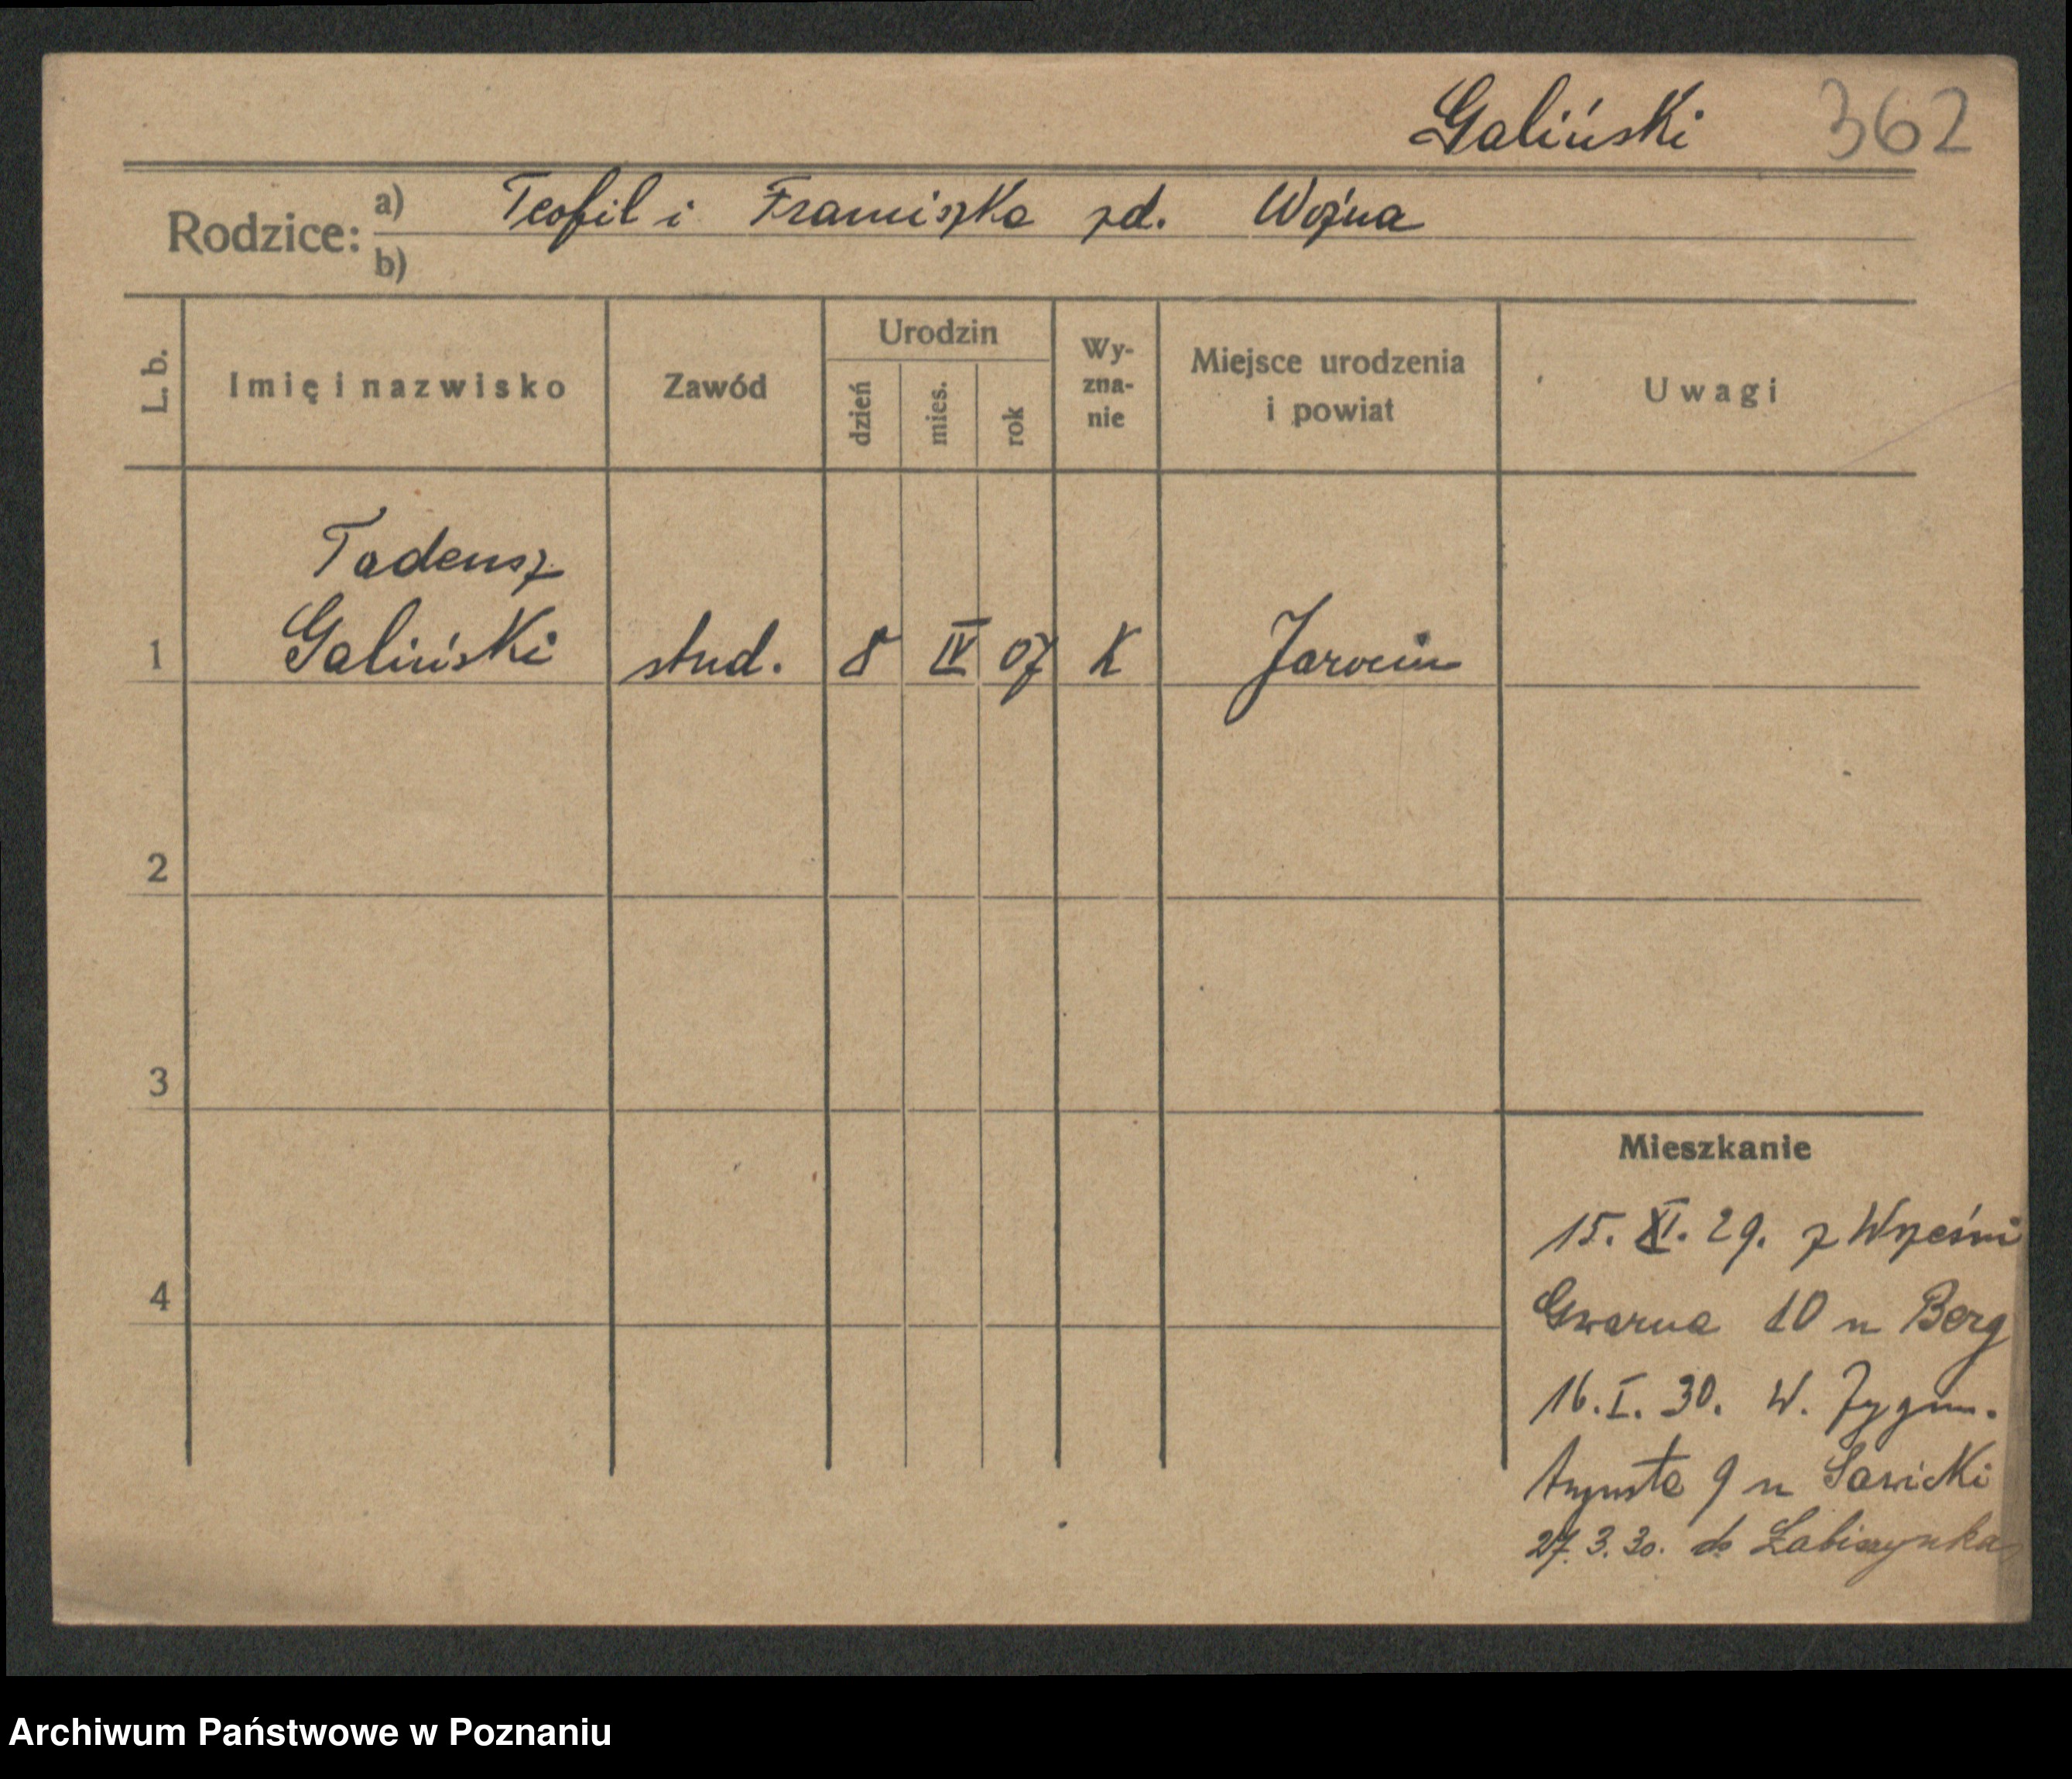 Galiński 362
Rodzice: a) Teofil i Franciszka zd. Woźna
b)
L. b. Imię i nazwisko Zawód Urodzin dzień mies. rok Wy-zna-nie Miejsce urodzenia i powiat Uwagi
Tadeusz
1 Galiński stud. 8 IV 07 K Jarocin
2
3
Mieszkanie
15. XI. 29. z Wrześni
4
Gwarna 10 u Berg
16. I. 30. W. Zygm.
Augusta 9 u Sawicki
27. 3. 30. do Łabiszynka
Archiwum Państwowe w Poznaniu